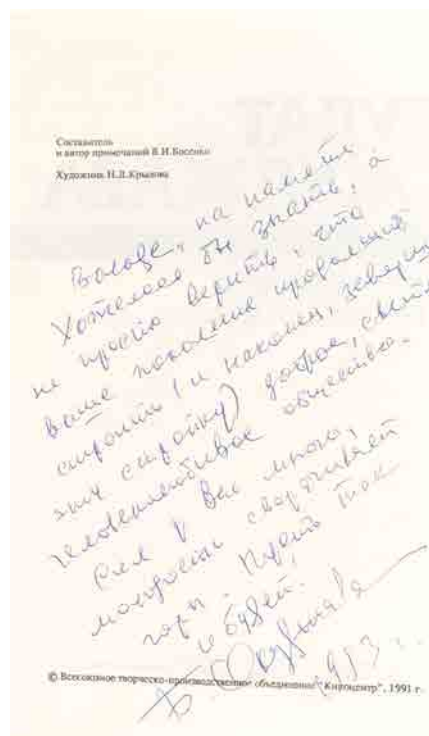 Составитель
и автор примечаний В.И.Босенко
Художник Н.Д.Крылова
Володе, на память
Хотелось бы знать, а
не просто верить, что
ваше поколение продолжит
строить (и наконец, завершит
эту стройку) доброе,
человеколюбивое общество.
Сил у Вас много,
молодость сворачивает
горы. Пусть так
и будет.
1993 г.
© Всесоюзное творческо-производственное объединение "Киноцентр", 1991 г.